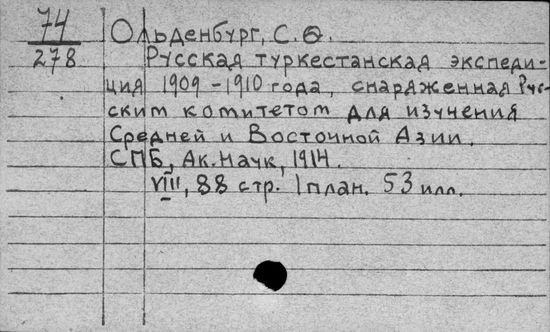 74
278
Ольденбург, С. Ѳ.
Русская туркестанская экспеди-
ция 1909-1910 года, снаряженная Рус-
ским комитетом для изучения
Средней и Восточной Азии.
СПБ, Ак. Наук, 1914.
VIII, 88 стр. 1 план. 53 илл.